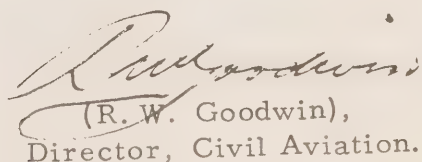 R W Goodwin
(R. W. Goodwin),
Director, Civil Aviation.